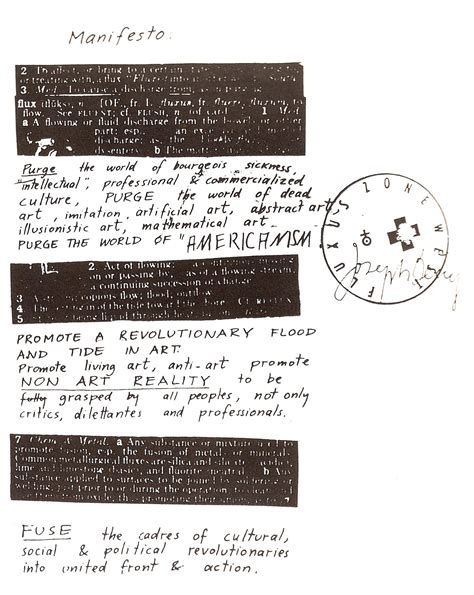 Manifesto.
2 To affect, or bring to a certain
or treating with, a flux
3 Med. To cause a discharge from, as in purging
flux (flŭks), n. [OF., fr. L. fluxus, fr. fluere, fluxum, to
flow. See FLUENT; cf. FLUSH, n. (of cards).] 1 Med.
a A flowing or fluid discharge from the bowels or other
part; esp.,
discharge; as, the
dysentery. b The matter
Purge the world of bourgeois sickness,
"intellectual", professional & commercialized
culture, PURGE the world of dead
art, imitation, artificial art, abstract art,
illusionistic art, mathematical art,
PURGE THE WORLD OF "AMERICANISM
FLUXUS ZONE WEST
Joseph Beuys
2 Act of flowing: a continuing
on or passing by, as of a flowing stream;
a continuing succession of change
3 A copious flow; flood
4 The setting in of the tide toward the shore.
5
PROMOTE A REVOLUTIONARY FLOOD
AND TIDE IN ART.
Promote living art, anti-art, promote
NON ART REALITY to be
fully grasped by all peoples, not only
critics, dilettantes and professionals.
7 Chem. & Metal. a Any substance or mixture used to
promote fusion, esp. the fusion of metals or minerals.
Common metallurgical fluxes are silica and
lime and limestone (basic), and fluorite (neutral). b Any
substance applied to surfaces to be joined by soldering or
welding, just prior to or during the operation, to clean
oxide, thus promoting their
FUSE the cadres of cultural,
social & political revolutionaries
into united front & action.